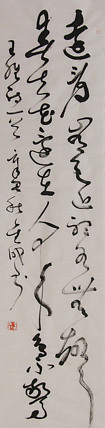 遠看山有色近聽水無聲
春去花還在人來鳥不驚
王維詩一首